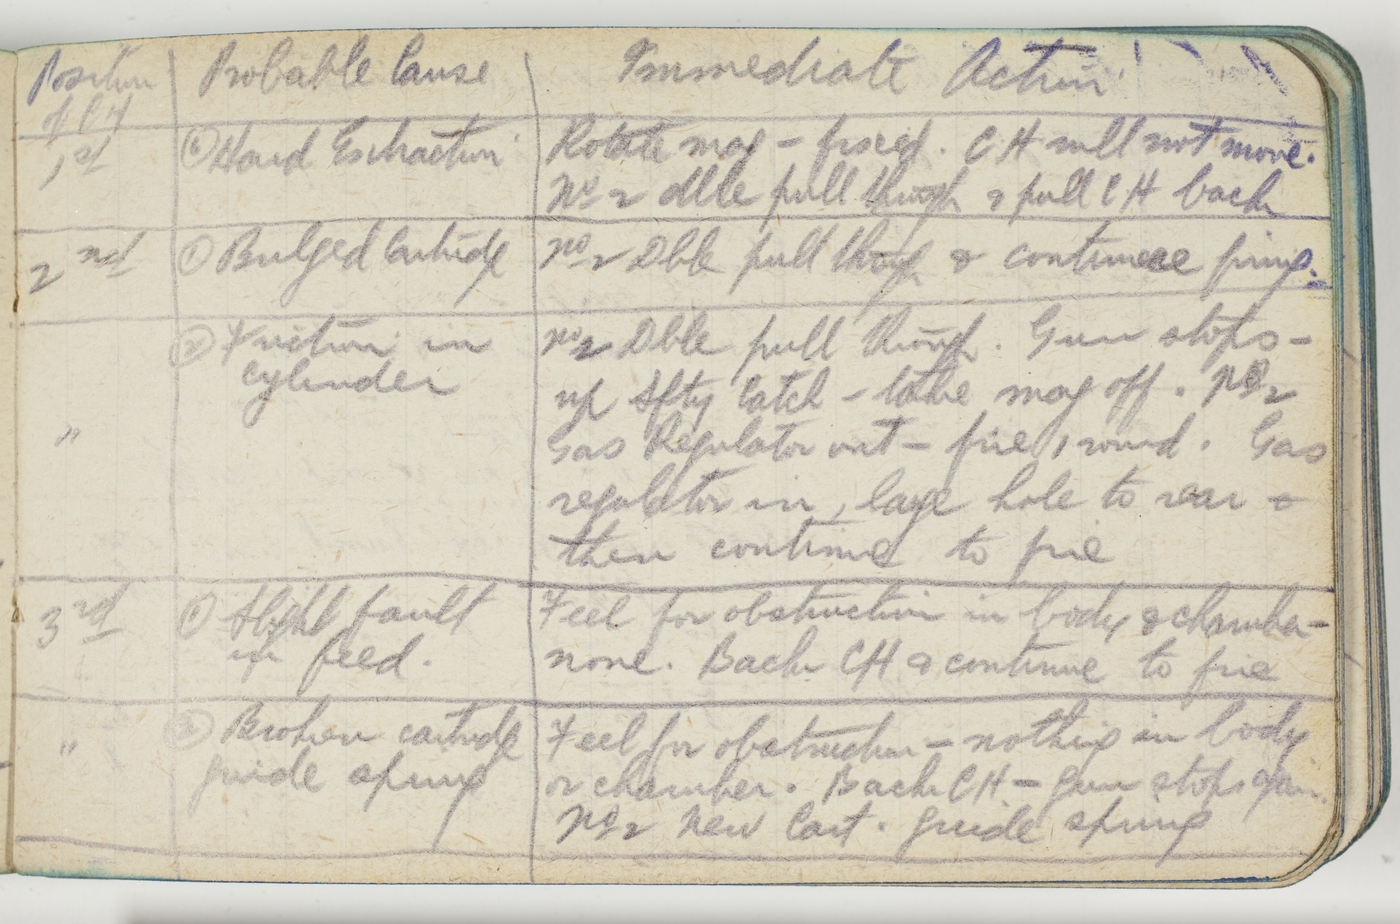 Position Probable Cause Immediate Action
of CH
1st ⑥ Hard Extraction Rotate mag – fixed. CH will not move.
No 2 dble pull through & pull CH back
2nd ① Bulged Cartridge No 2 Dble pull through & continue firing.
② Friction in No 2 Dble pull through. Gun stops –
cylinder up sfty catch – take mag off. No 2
" Gas Regulator out – fire 1 round. Gas
regulator in, large hole to rear &
then continue to fire
3rd ① Slight fault Feel for obstruction in body & chamber –
in feed. none. Back CH & continue to fire
" ② Broken cartridge Feel for obstruction – nothing in body
guide spring or chamber. Back CH – gun stops again.
No 2 New Cart. guide spring